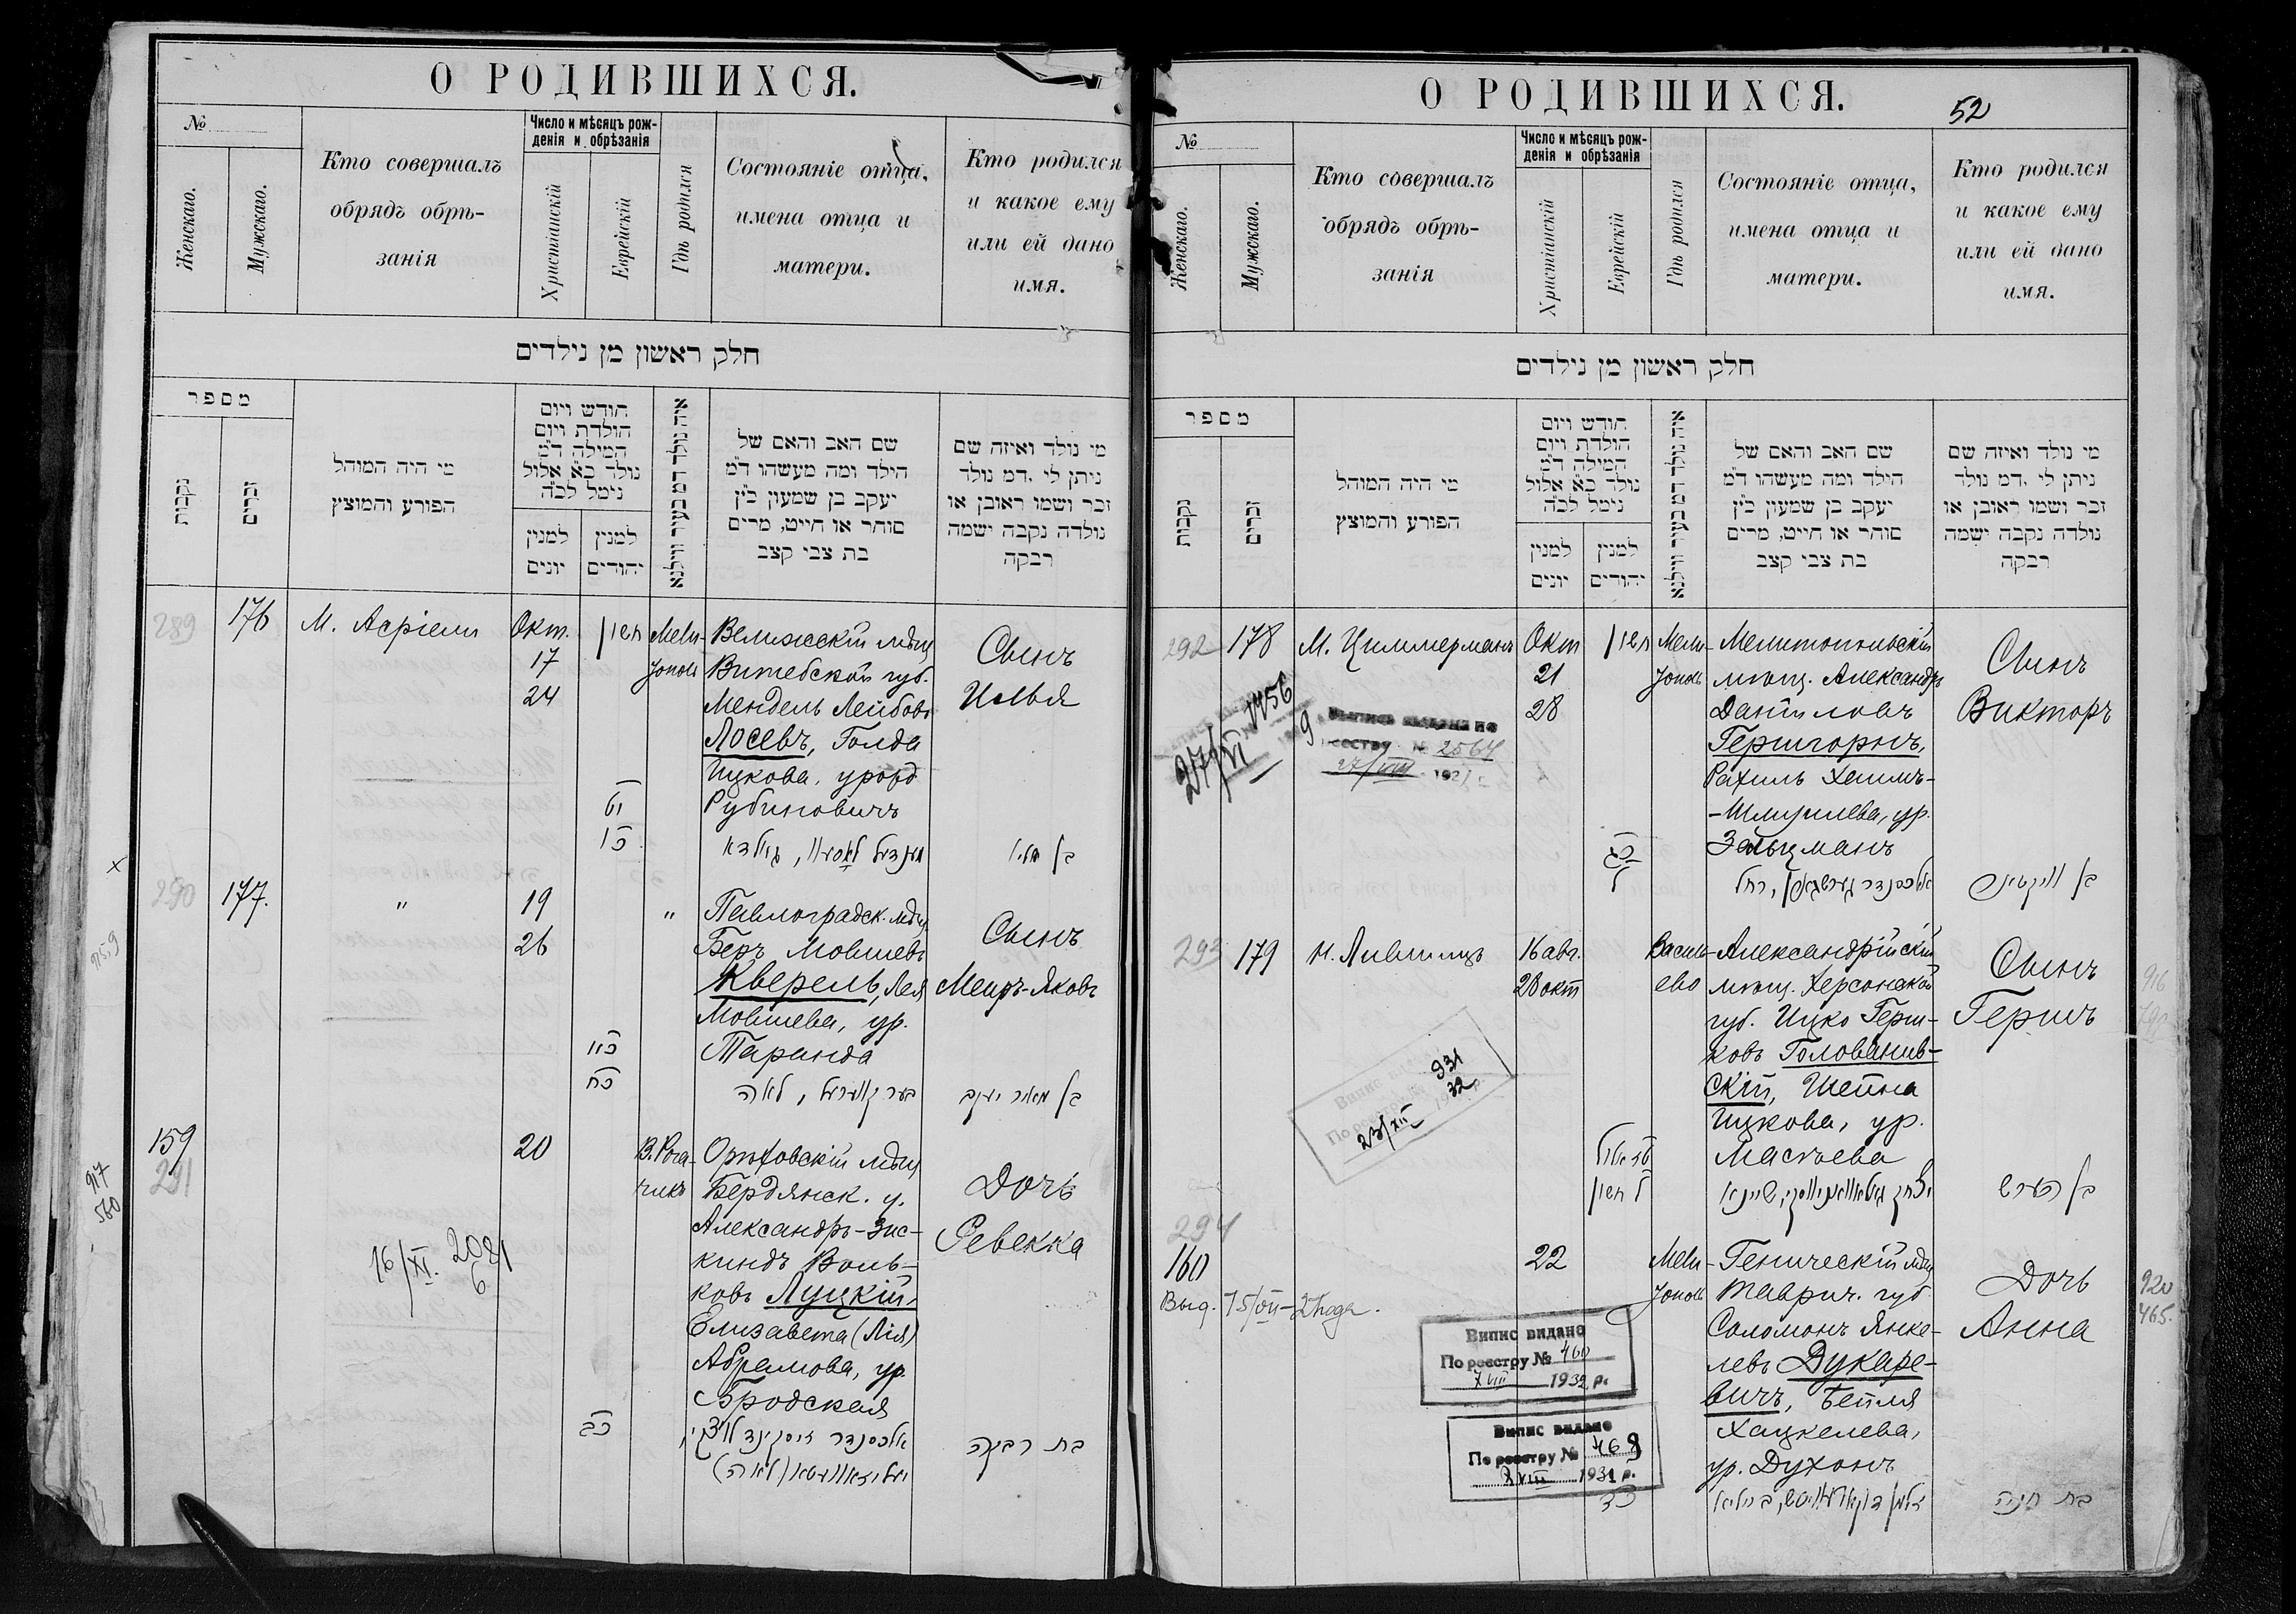 О РОДИВШИХСЯ.
№
Женскаго.
Мужскаго.
Кто совершалъ
обрядъ обрѣ-
занія
Число и мѣсяцъ рож-
денія и обрѣзанія
Христіанскій
Еврейскій
Гдѣ родился
Состояніе отца,
имена отца и
матери.
Кто родился
и какое ему
или ей дано
имя.
חלק ראשון מן נילדים
מספר
נקבות
זכרים
מי היה המוהל
הפורע והמוצץ
חודש ויום
הולדת ויום
המילה ד״מ
נולד כ״א אלול
נימל לכ״ה
למנין
יונים
למנין
יהודים
איה נולד ד״מ בעיר ווילנא
שם האב והאם של
הילד ומה מעשהו ד״מ
יעקב בן שמעון כ״ץ
סוחר או חייט, מרים
בת צבי קצב
מי נולד ואיזה שם
ניתן לי .ד״מ נולד
זכר ושמו ראובן או
נולדה נקבה ישמה
רבקה
289
176
М. Асріели
Окт.
17
24
חשון
יט
כו
Мели-
тополь
Велижскій мѣщ
Витебской губ.
Мендель Лейбовъ
Лосевъ, Голда
Ицкова, урожд
Рубиновичъ
Сынъ
Илья
290
177.
"
19
26
כח
"
Павлоградск. мѣщ
Беръ Мовшевъ
Кверель, Лея
Мовшева, ур.
Таранда
Сынъ
Меиръ-Яковъ
בן מאיר יעקב
159
291
20
כב
В. Рога-
чикъ
Орѣховскій мѣщ
Бердянск. у.
Александръ-Зис-
киндъ Воль-
ковъ Луцкій,
Елизавета (Лія)
Абрамова, ур.
Бродская
אלכסנדר זיסקינד לוצקי,
Дочь
Ревекка
בת רבקה
16/XI.
917
560
О РОДИВШИХСЯ.
52
№
Женскаго.
Мужскаго.
Кто совершалъ
обрядъ обрѣ-
занія
Число и мѣсяцъ рож-
денія и обрѣзанія
Христіанскій
Еврейскій
Гдѣ родился
Состояніе отца,
имена отца и
матери.
Кто родился
и какое ему
или ей дано
имя.
חלק ראשון מן נילדים
מספר
נקבות
זכרים
מי היה המוהל
הפורע והמוצץ
חודש ויום
הולדת ויום
המילה ד״מ
נולד כ״א אלול
נימל לכ״ה
למנין
יונים
למנין
יהודים
איה נולד ד״מ בעיר ווילנא
שם האב והאם של
הילד ומה מעשהו ד״מ
יעקב בן שמעון כ״ץ
סוחר או חייט, מרים
בת צבי קצב
מי נולד ואיזה שם
ניתן לי .ד״מ נולד
זכר ושמו ראובן או
נולדה נקבה ישמה
רבקה
292
178
М. Циммерманъ
Окт
21
28
חשון
כג
ל
Мели-
тополь
Мелитопольскій
мѣщ. Александръ
Даниловъ
Гершгорнъ,
Рахиль Хаимъ-
-Шмулева, ур.
Зальцманъ
Сынъ
Викторъ
27/VI
1456
9
выпись выдана по
реестру № 2564
27/VIII 192
293
179
И. Лившицъ
16 авг.
28 окт
ל חשון
Василь-
ево
Александрійскій
мѣщ. Херсонской
губ. Ицко Герш-
ковъ Голованив-
скій, Шейна
Ицкова, ур.
Масѣева
Сынъ
Гершъ
בן הערש
916
931
32
23/XII
294
160
22
כד
Мели-
тополь
Геническій мѣщ
Таврич. губ
Соломонъ Янке-
левъ Дукаре-
вичъ, Бейля
Хацкелева,
ур. Духонъ
Дочь
Анна
בת חניה
Выд. 15/VII-
Випис видано
По реестру № 460
7 VIII 1932 р.
Випис видано
По реестру № 468
VIII 1931 р.
920
465.